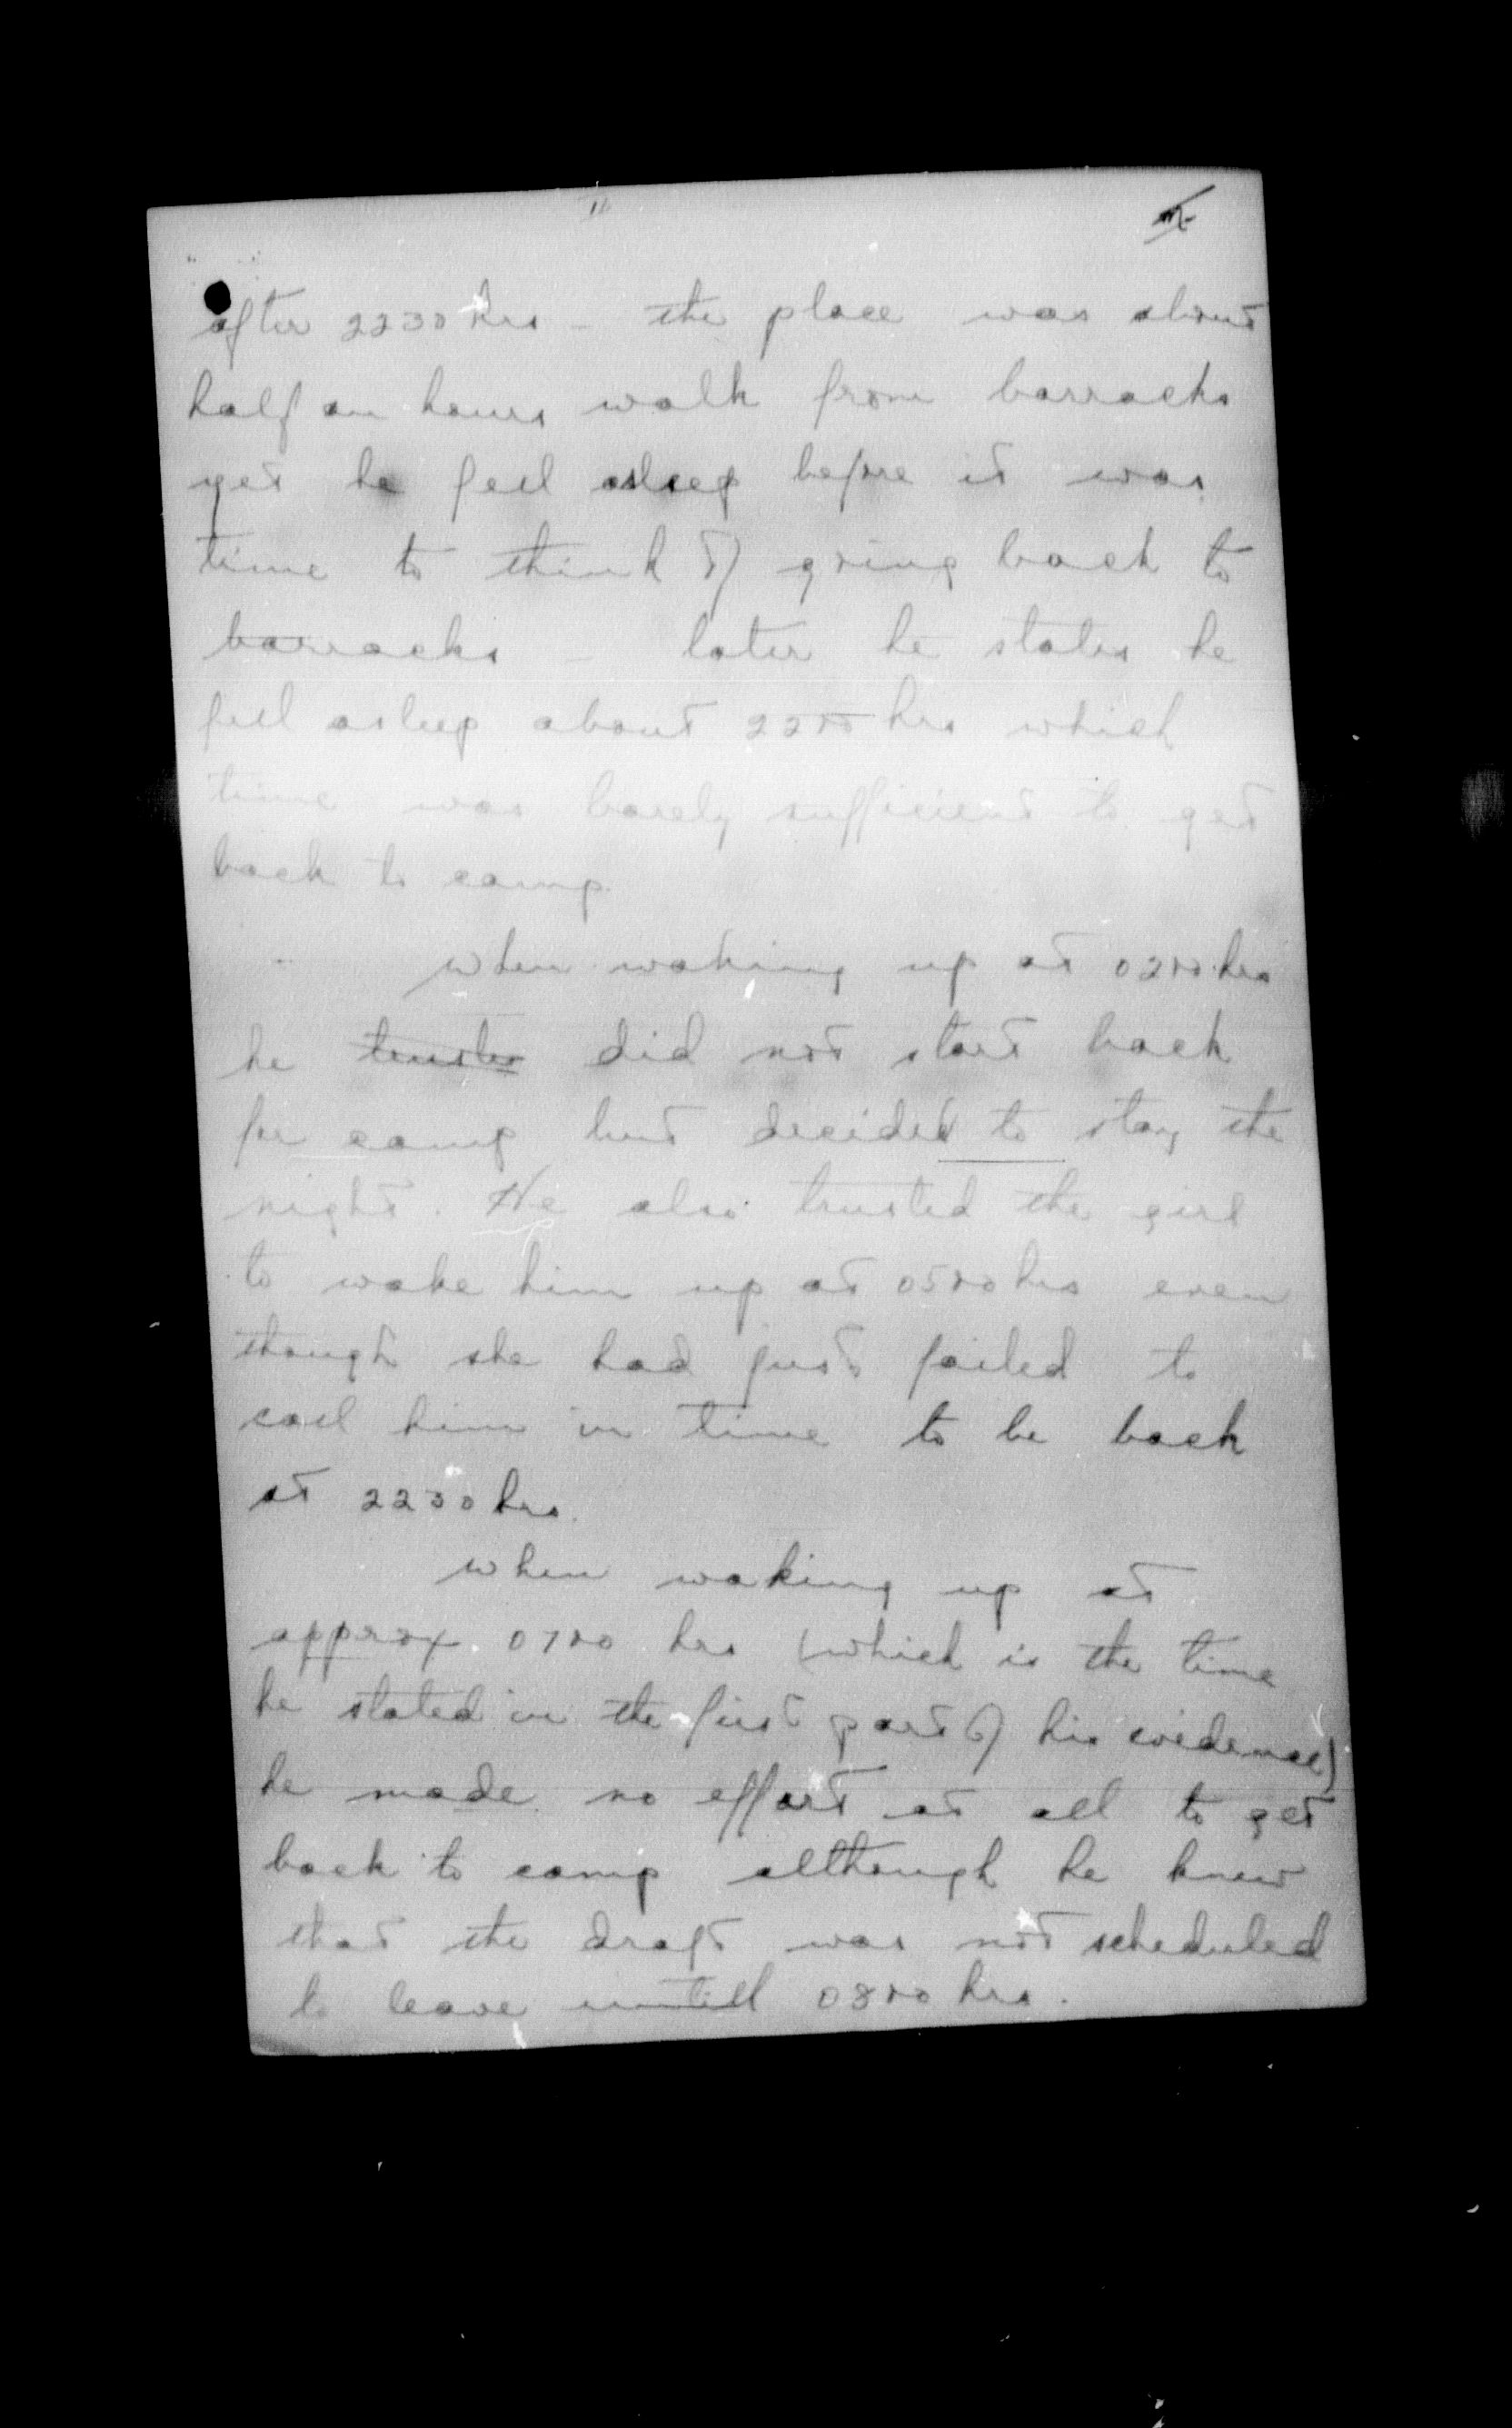 11
after 2230 hrs – the place was about
half an hours walk from barracks
yet he fell asleep before it was
time to think of going back to
barracks – later he states he
fell asleep about 2200 hrs which
time was barely sufficient to get
back to camp.
when waking up at 0200 hrs
he did not start back
for camp but decided to stay the
night. He also trusted the girl
to wake him up at 0500 hrs even
though she had just failed to
call him in time to be back
at 2230 hrs.
when waking up at
approx. 0700 hrs (which is the time
he stated in the first part of his evidence)
he made no effort at all to get
back to camp although he knew
that the draft was not scheduled
to leave untill 0800 hrs.